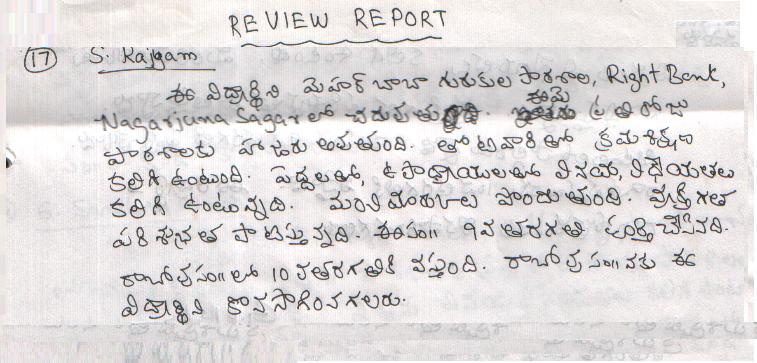 REVIEW REPORT
(17) S. Rajyam
ఈ విద్యార్థిని మెహర్ బాబా గురుకుల పాఠశాల, Right Bank,
Nagarjuna Sagar లో చదువుతున్నది ఈమె ప్రతి రోజు
పాఠశాలకు హాజరు అవుతుంది. తోటివారితో క్రమశిక్షణ
కలిగి ఉంటుంది. పెద్దలతో, ఉపాధ్యాయులతో వినయ, విధేయతలు
కలిగి ఉంటున్నది. మంచి మార్కులు పొందుతుంది. వ్యక్తిగత
పరిశుభ్రత పాటిస్తున్నది. ఈసం॥ 9వ తరగతి పూర్తి చేసినది.
రాబోవు సం॥లో 10 వతరగతికి వస్తుంది. రాబోవు సం॥నకు ఈ
విద్యార్థిని కొనసాగించగలరు.